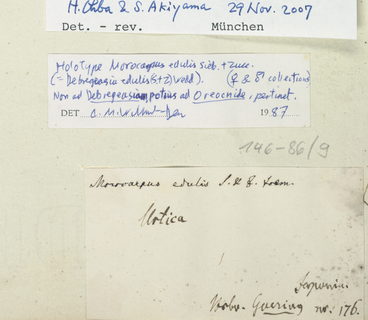 H. Ohba & S. Akiyama 29 Nov. 2007
Det. - rev. München
Holotype Morocarpus edulis Sieb. + Zucc.
(= Debregeasia edulis (S.+Z.) Wedd). (♀ & ♂ collections
Non ad Debregeasia potius ad Oreocnide, pertinet.
DET C. M. Wilmot-Dear 1987
146-86/9
Morocarpus edulis S. & Z.
Urtica
Japonia.
Herb. Goering nr. 176.